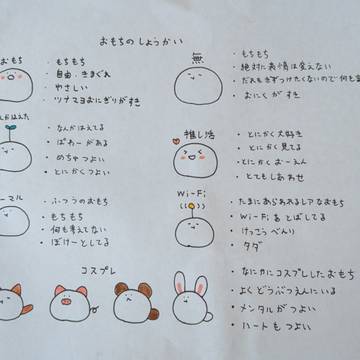 おもちの しょうかい
おもち
・もちもち
・自由・きまぐれ
・やさしい
・ツナマヨおにぎりがすき
無
・もちもち
・絶対に表情は変えない
・だれもきずつけたくないので何も
・おにくがすき
んかはえた
・なんかはえてる
・ぱわーがある
・めちゃつよい
・とにかくつよい
推し活
・とにかく大好き
・とにかく見てる
・とにかくおーえん
・とてもしあわせ
ーマル
・ふつうのおもち
・もちもち
・何も考えてない
・ぼけーとしてる
Wi-Fi
・たまにあらわれるレアなおもち
・Wi-Fiをとばしてる
・けっこうべんり
・タダ
コスプレ
・なにかにコスプレしたおもち
・よくどうぶつえんにいる
・メンタルがつよい
・ハートもつよい